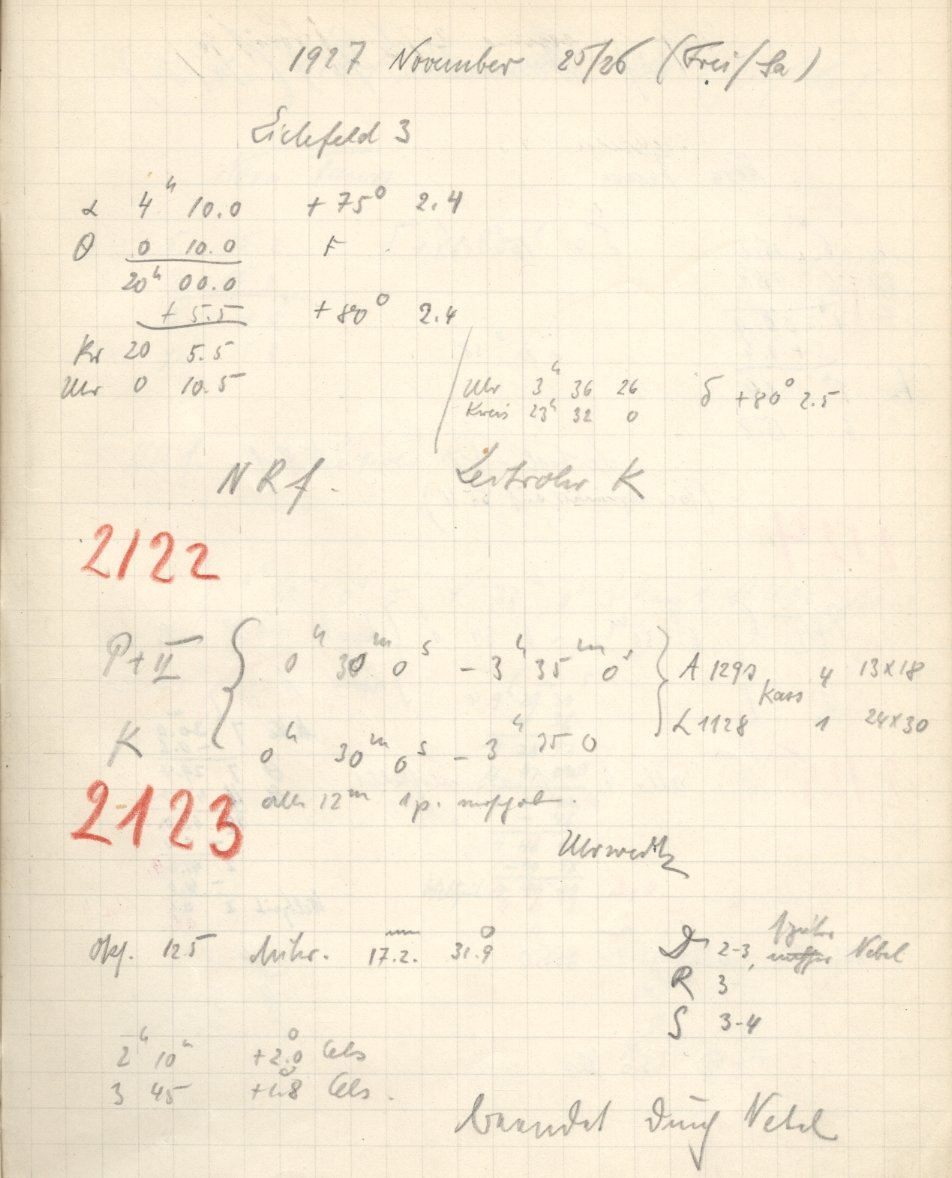 1927 November 25/26 (Frei/Sa)
Eichfeld 3
α 4ʰ 10.0 +75° 2.4
θ 0 10.0 F
20ʰ 00.0
+ 5.5 +80° 2.4
Kr 20 5.5
Uhr 0 10.5
Uhr 3ʰ 36 26 δ +80° 2.5
Kreis 23ʰ 32 0
NRf. Leitrohr K
2122
P+II { 0ʰ 30ᵐ 0ˢ – 3ʰ 35ᵐ 0ˢ } A 1292 Kass 4 13×18
K 0ʰ 30ᵐ 0ˢ – 3ʰ 35 0 L 1128 1 24×30
2123 alle 12ᵐ 1p.
Obj. 125 Mikr. 17.2. 31.9
D 2-3, später Nebel
R 3
S 3-4
2ʰ 10ᵐ +2.0° Cels
3 45 +1.8 Cels.
beendet durch Nebel